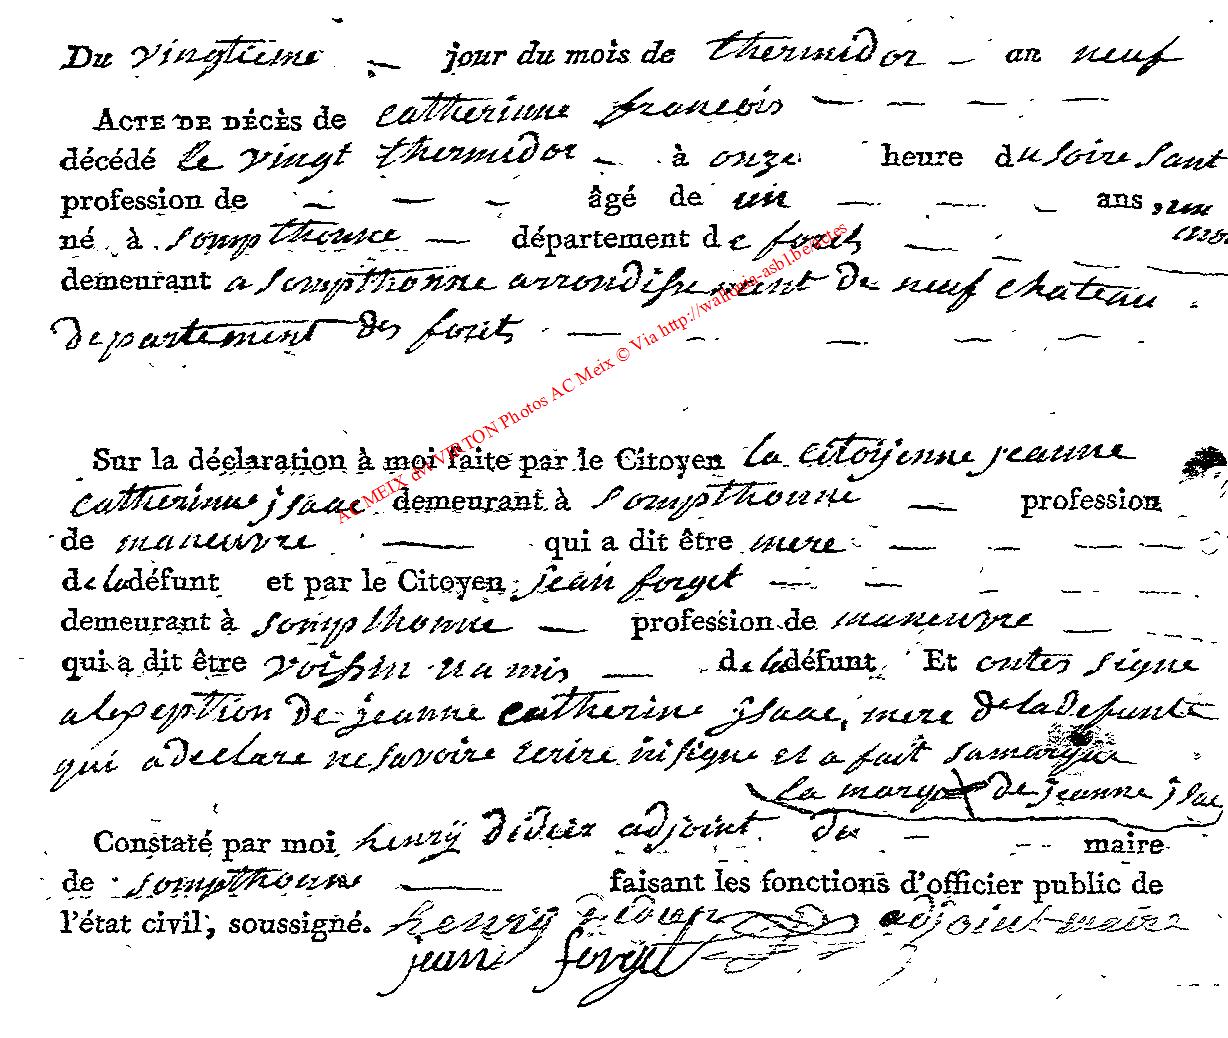 Du vingtieme jour du mois de thermidor an neuf
ACTE DE DÉCÈS de catherinne francois
décédé le vingt thermidor à onze heure du soire sant
profession de âgé de un ans, une
né à sompthonne département de forets
demeurant a sompthonne arrondissement de neuf chateau
departement des forets
Sur la déclaration à moi faite par le Citoyen la citoyenne jeanne
catherinne jsaac demeurant à sompthonne profession
de maneuvre qui a dit être mere
de la défunt et par le Citoyen jean forget
demeurant à sompthonne profession de maneuvre
qui a dit être voissin de la défunt Et ontes signe
a lexeption de jeanne catherine jsaac, mere de la defunte
qui a declare ne savoire ecrire ni signe et a fait sa marque
la marque de jeanne jsac
Constaté par moi henrÿ didier adjoint du maire
de sompthonne faisant les fonctions d'officier public de
l'état civil, soussigné. henry adjoint maire
jean forget
AC MEIX dvt VIRTON Photos AC Meix © Via http://wallonia-asbl.be/actes